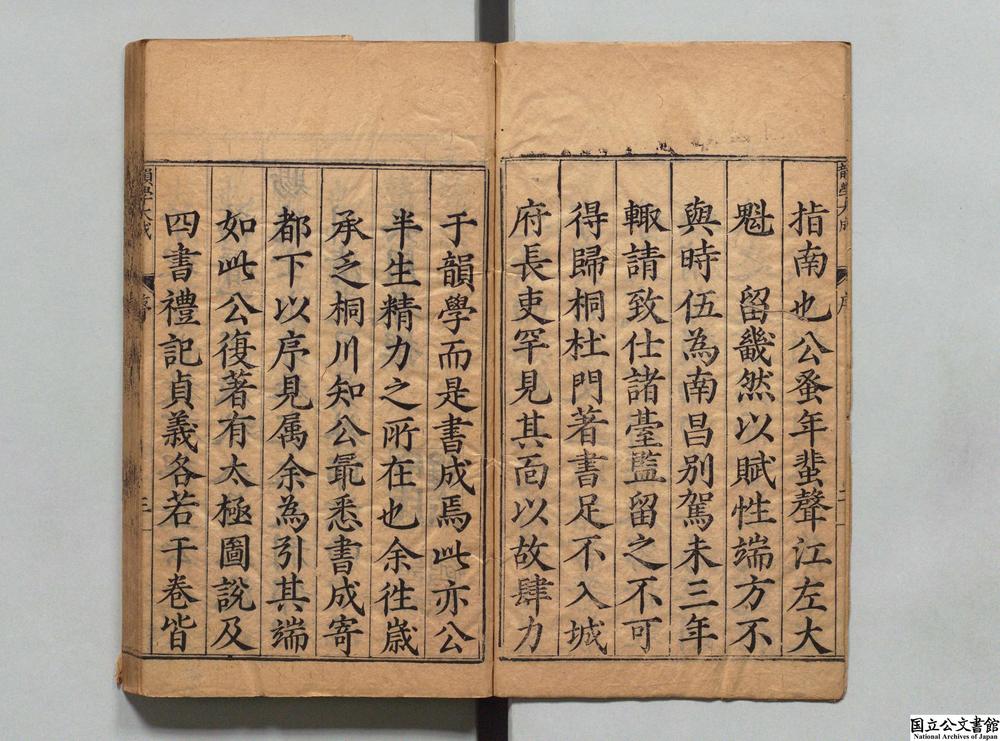 指南也公蚤年蜚聲江左大
魁　留畿然以賦性端方不
與時伍為南昌別駕未三年
輙請致仕諸臺監留之不可
得歸桐杜門著書足不入城
府長吏罕見其靣以故肆力
于韻學而是書成焉此亦公
半生精力之所在也余徃歲
承乏桐川知公最悉書成寄
都下以序見属余為引其端
如此公復著有太極圖說及
四書禮記貞義各若干卷皆
韻學大成
序
二
韻學大成
序
三
国立公文書館
National Archives of Japan